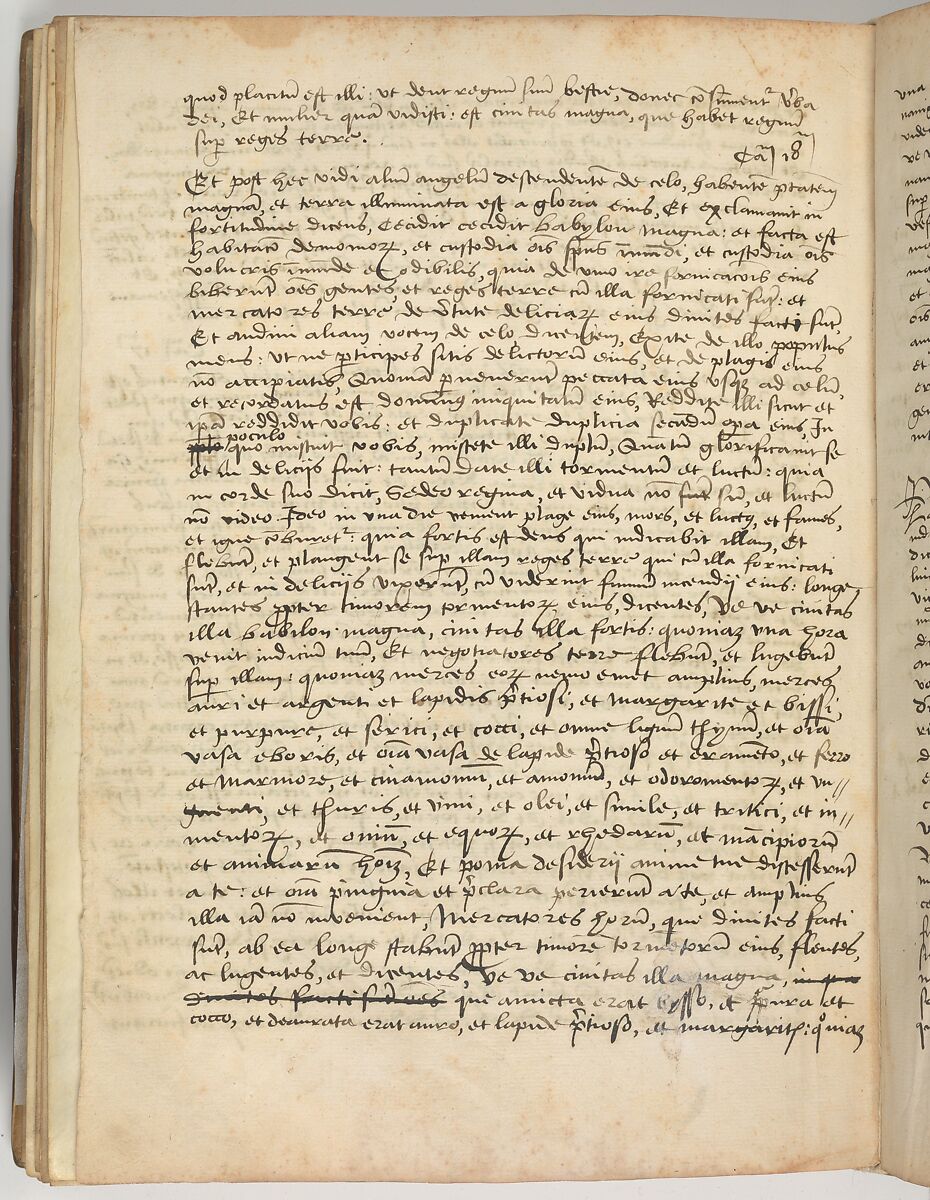 quod placitū est illi: ut dent regnū suū bestie, donec cōsum̄ent᷑ v̄ba
dei, Et mulier quā vidisti: est civitas magna, que habet regnū
sup̄ reges terre.
Ca᷑ 18
Et post hec vidi aliū angelū descendentē de celo, habentē p̄tatem
magnā, et terra illuminata est a gloria eius, Et exclamavit in
fortitudine dicens, Cecidit cecidit babylon magna: et facta est
habitacō demonioꝝ, et custodia ōis sp̄us īmūdi, et custodia ōis
volucris imūde et odibilis, quia de vino ire fornicacōis eius
biberūt oēs gentes, et reges terre cū illa fornicati sūt: et
mercatores terre de v̄tute deliciaꝝ eius divites facti sūt,
Et audivi aliam vocem de celo, dicentem, Exite de illo populus
meus: ut ne p̄ticipes sitis delictorū eius, et de plagis eius
nō accipiatis, Quoniā pvenerūt peccata eius usqꝫ ad celū,
et recordatus est dominus iniquitatum eius, Reddite illi sicut et
ip̄a reddidit vobis: et duplicate duplicia secūdū op̄a eius, In
poculo
quo miscuit vobis, miscete illi duplū, Quātū glorificavit se
et in delicijs fuit: tantū date illi tormentū et luctū: quia
in corde suo dicit, Sedeo regina, et vidua nō sū, et luctū
nō video. Ideo in una die venient plage eius, mors, et luctꝯ, et fames,
et igne cōburet᷑: quia fortis est deus qui iudicabit illam, Et
flebūt, et plangent se sup̄ illam reges terre qui cū illa fornicati
sūt, et in delicijs vixerūt, cū viderint fumū incendij eius: longe
stantes ꝓpter timorem tormentoꝝ eius, dicentes, Ve ve civitas
illa babilon magna, civitas illa fortis: quoniaꝫ una hora
venit iudiciū tuū, Et negotiatores terre flebūt, et lugebūt
sup̄ illam: quoniaꝫ merces eoꝝ nemo emet amplius, merces
auri et argenti et lapidis p̄tiosi, et margarite et bissi,
et purpure, et serici, et cocci, et omne lignū thynū, et oīa
vasa eboris, et oīa vasa de lapide p̄tioso et eramēto, et ferro
et marmore, et cinamomū, et amomū, et odoromentoꝝ, et un//
guenti, et thuris, et vini, et olei, et simile, et tritici, et in//
mentoꝝ, et oviū, et equoꝝ, et rhedarū, et mācipiorū
et animarū hoīꝫ, Et poma desiderij anime tue discesserūt
a te: et oīa pinguia et p̄clara perierūt a te, et amplius
illa iā nō invenient, Mercatores horū, que divites facti
sūt, ab ea longe stabūt ꝓpter timorē tormētorū eius, flentes,
ac lugentes, et dicentes, Ve ve civitas illa magna, in qua
divites facti sūt oēs que amicta erat bysso, et p̄pura et
cocco, et deaurata erat auro, et lapide p̄tioso, et margaritꝭ: qꝫoniaꝫ